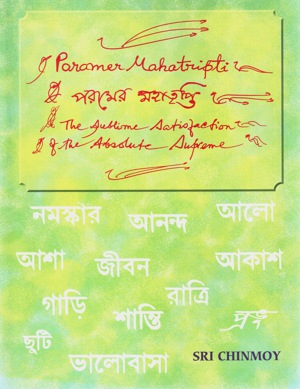 Paramer Mahatripti
পরমের মহাতৃপ্তি
The Sublime Satisfaction
of the Absolute Supreme
নমস্কার আনন্দ আলো
আশা জীবন আকাশ
গাড়ি শান্তি রাত্রি
ছুটি ভালোবাসা
SRI CHINMOY